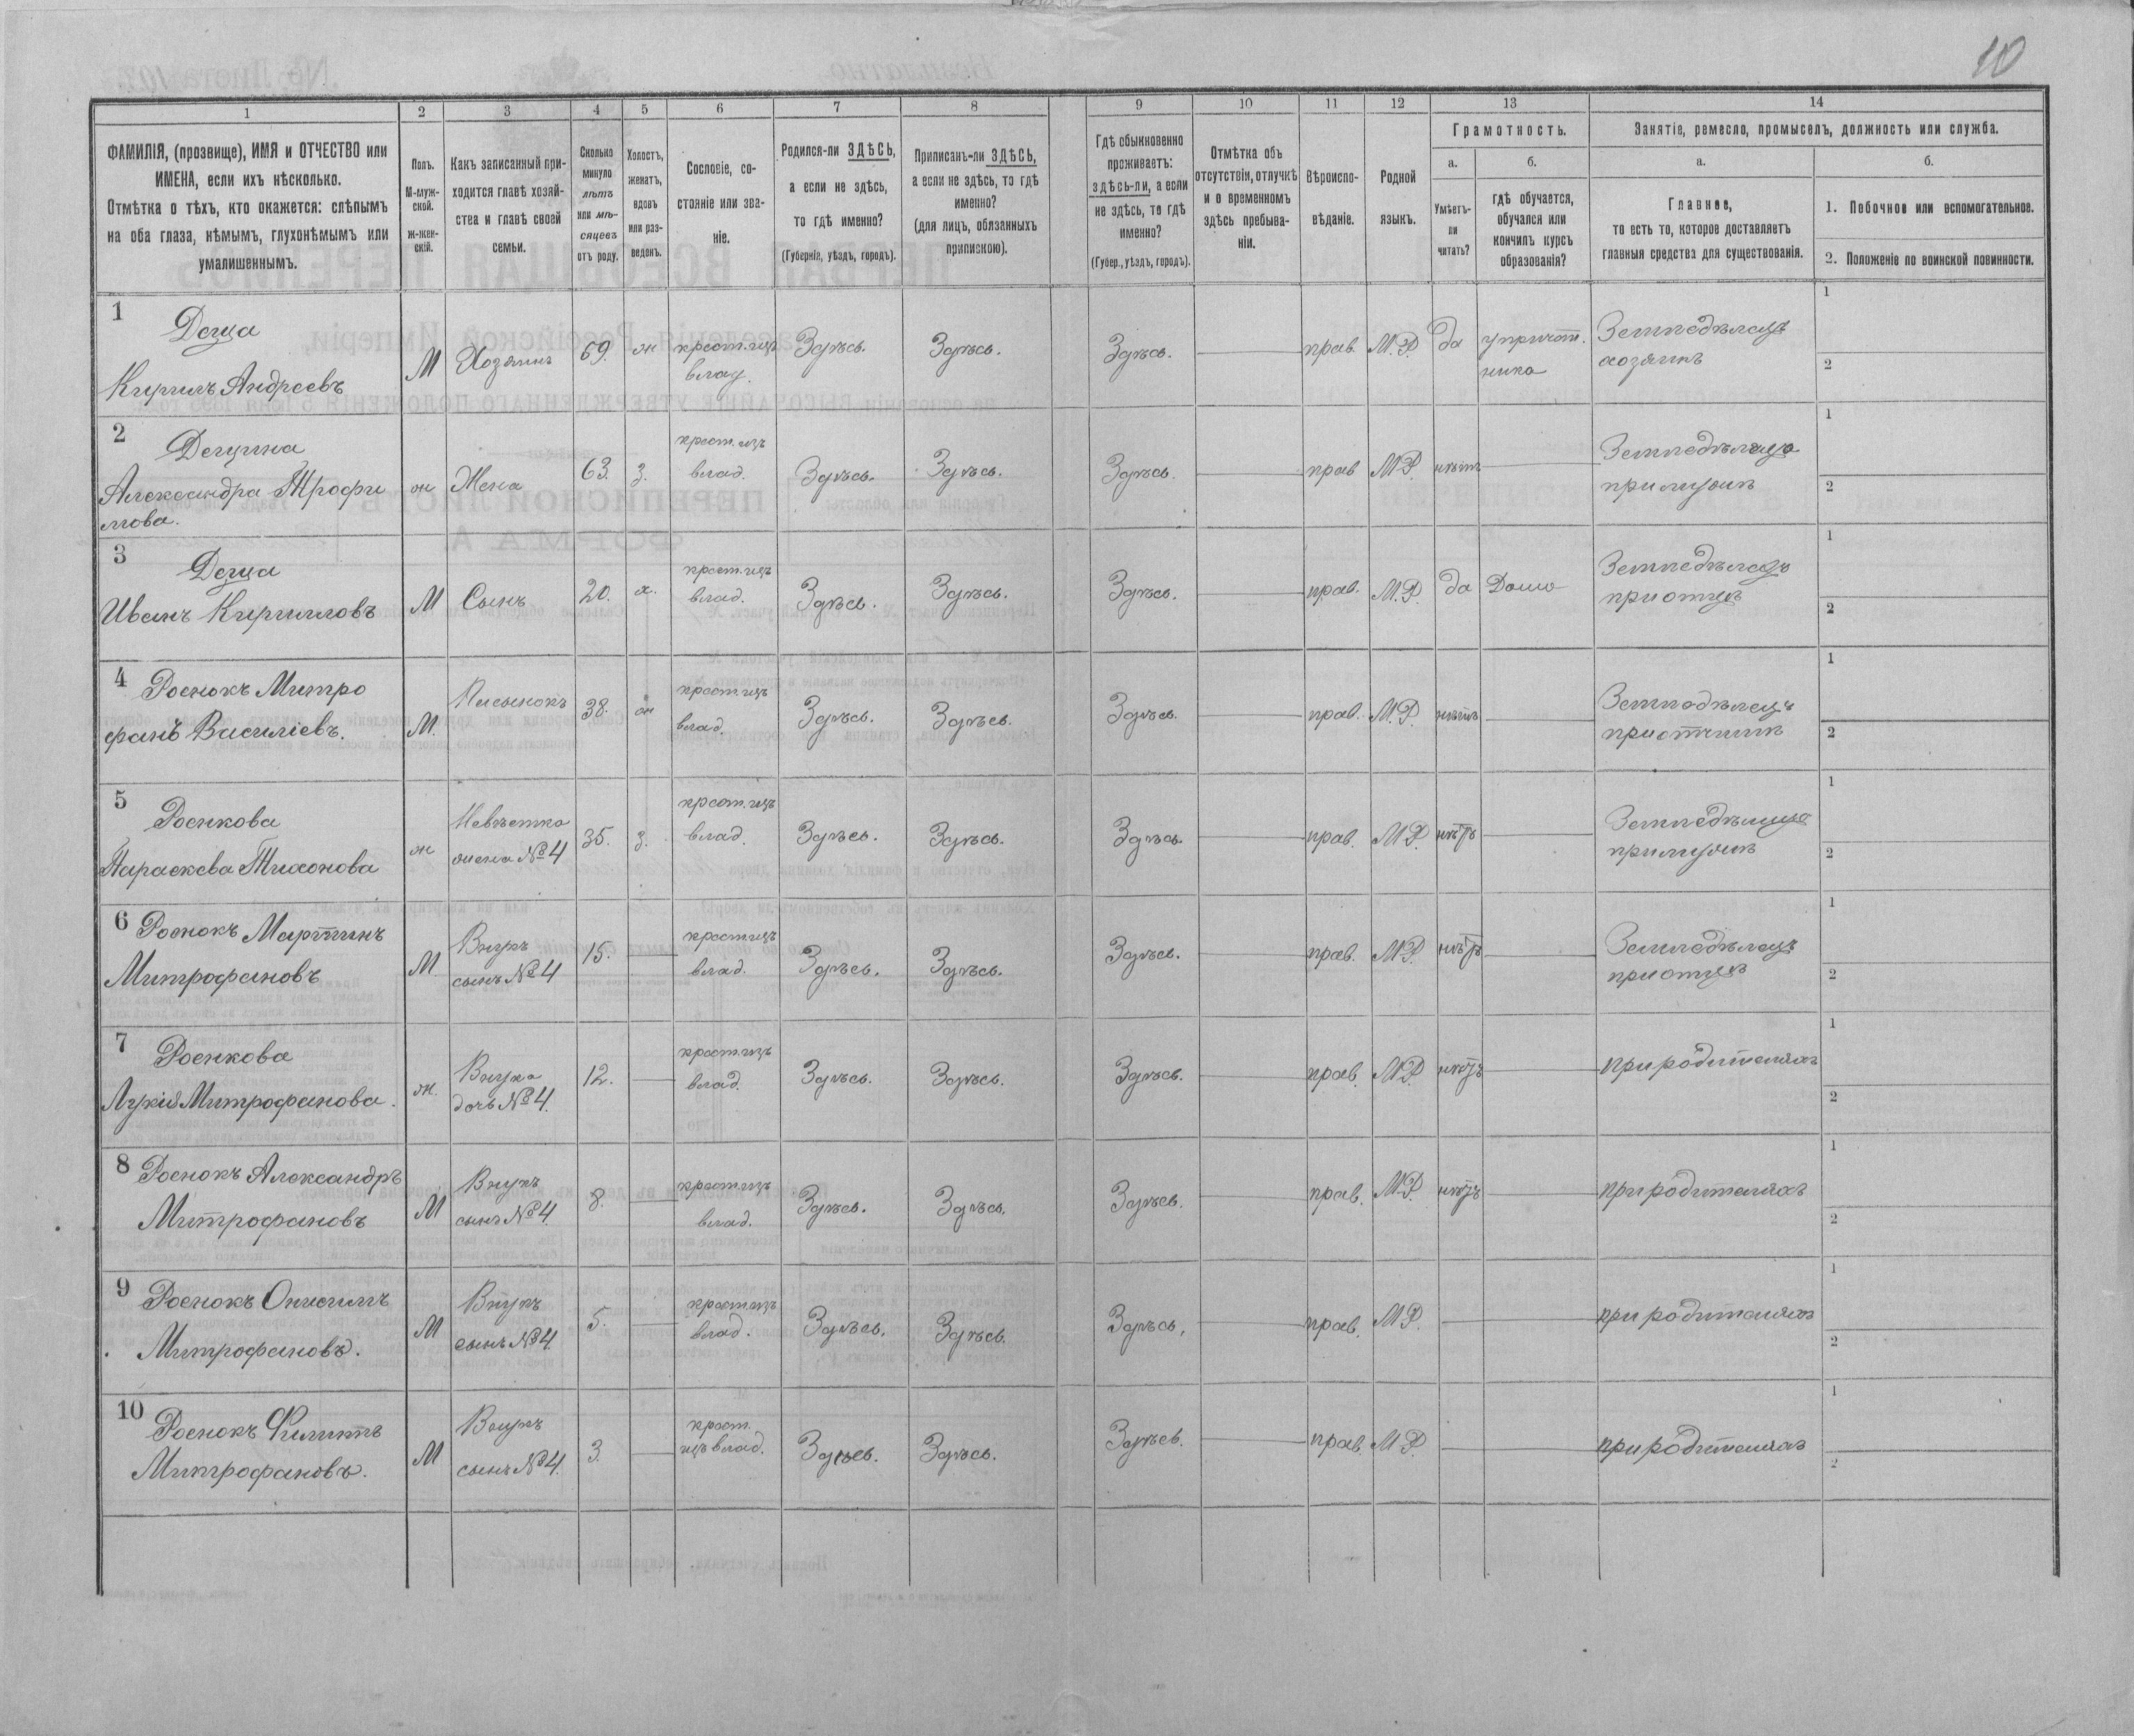 10
1 2 3 4 5 6 7 8 9 10 11 12 13 14
ФАМИЛІЯ, (прозвище), ИМЯ и ОТЧЕСТВО или
ИМЕНА, если ихъ нѣсколько.
Отмѣтка о тѣхъ, кто окажется: слѣпымъ
на оба глаза, нѣмымъ, глухонѣмымъ или
умалишеннымъ.
Полъ.
М-муж-
ской.
ж-жен-
скій.
Какъ записанный при-
ходится главѣ хозяй-
ства и главѣ своей
семьи.
Сколько
минуло
лѣтъ
или мѣ-
сяцевъ
отъ роду.
Холостъ,
женатъ,
вдовъ
или раз-
веденъ.
Сословіе, со-
стояніе или зва-
ніе.
Родился-ли ЗДѢСЬ,
а если не здѣсь,
то гдѣ именно?
(Губернія, уѣздъ, городъ).
Приписанъ-ли ЗДѢСЬ,
а если не здѣсь, то гдѣ
именно?
(для лицъ, обязанныхъ
припискою).
Гдѣ обыкновенно
проживаетъ:
здѣсь-ли, а если
не здѣсь, то гдѣ
именно?
(Губер., уѣздъ, городъ).
Отмѣтка объ
отсутствіи, отлучкѣ
и о временномъ
здѣсь пребыва-
ніи.
Вѣроиспо-
вѣданіе.
Родной
языкъ.
Грамотность.
а. б.
Умѣетъ-
ли
читать?
гдѣ обучается,
обучался или
кончилъ курсъ
образованія?
Занятіе, ремесло, промыселъ, должность или служба.
а. б.
Главное,
то есть то, которое доставляетъ
главныя средства для существованія.
1. Побочное или вспомогательное.
2. Положеніе по воинской повинности.
1
Кирилъ Андреевъ
М Хозяинъ 69. ж крест. изъ влад. Здѣсь. Здѣсь. Здѣсь. прав. М.Р. да у причет.
ника
Земледѣлецъ
хозяинъ
1
2
2
Александра Трофи
мова.
ж Жена 63. з. крест. изъ влад. Здѣсь. Здѣсь. Здѣсь. прав М.Р. нѣтъ
Земледѣлица
при мужѣ
1
2
3
Иванъ Кирилловъ
М Сынъ 20. х. крест. изъ влад. Здѣсь. Здѣсь. Здѣсь. прав. М.Р. да Дома
Земледѣлецъ
при отцѣ
1
2
4 Роенокъ Митро
фанъ Василіевъ.
М. Пасынокъ 38. ж крест. изъ влад. Здѣсь. Здѣсь. Здѣсь. прав. М.Р. нѣтъ
Земледѣлецъ
при отчимѣ
1
2
5
Роенкова
Параскева Тихонова
ж Невѣстка
жена №4 35. з. крест. изъ влад. Здѣсь. Здѣсь. Здѣсь. прав. М.Р. нѣтъ
Земледѣлица
при мужѣ
1
2
6 Роенокъ Мартинъ
Митрофановъ
М. Внукъ
сынъ №4 15. крест. изъ влад. Здѣсь. Здѣсь. Здѣсь. прав. М.Р. нѣтъ
Земледѣлецъ
при отцѣ
1
2
7
Роенкова
Лукія Митрофанова.
ж. Внука
дочь №4. 12. крест. изъ влад. Здѣсь. Здѣсь. Здѣсь. прав. М.Р. нѣтъ
при родителяхъ
1
2
8 Роенокъ Александръ
Митрофановъ
М Внукъ
сынъ №4. 8. крест. изъ влад. Здѣсь. Здѣсь. Здѣсь. прав. М.Р. нѣтъ
при родителяхъ
1
2
9
Роенокъ Онисимъ
Митрофановъ.
М Внукъ
сынъ №4 5. крест. изъ влад. Здѣсь. Здѣсь. Здѣсь. прав. М.Р.
при родителяхъ
1
2
10
Роенокъ Филиппъ
Митрофановъ.
М Внукъ
сынъ №4. 3. крест.
изъ влад. Здѣсь. Здѣсь. Здѣсь. прав. М.Р.
при родителяхъ
1
2